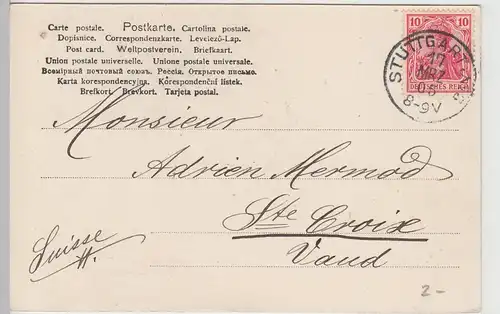 Carte postale. Postkarte. Cartolina postale.
Dopisnice. Correspondenzkarte. Levelező-Lap.
Post card. Weltpostverein. Briefkaart.
Union postale universelle. Unione postale universale.
Всемірный почтовый союзъ. Россія. Открытое письмо.
Karta korespondencyjna. Korespondenční lístek.
Brefkort. Brevkort. Tarjeta postal.
10 10
DEUTSCHES REICH
STUTTGART
17
MRZ
8-9V
Monsieur
Adrien Mermod
Ste Croix
Vaud
Suisse
2-